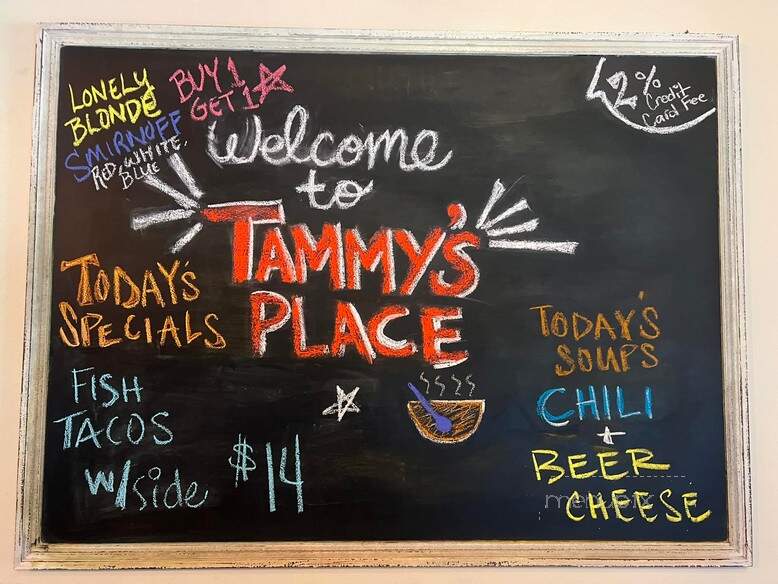 LONELY
BLONDE
SMIRNOFF
RED, WHITE,
BLUE
BUY 1
GET 1
Welcome
to
TAMMY'S
PLACE
2%
Credit
Card Fee
TODAY'S
SPECIALS
FISH
TACOS
w/side
$14
TODAY'S
SOUPS
CHILI
+
BEER
CHEESE